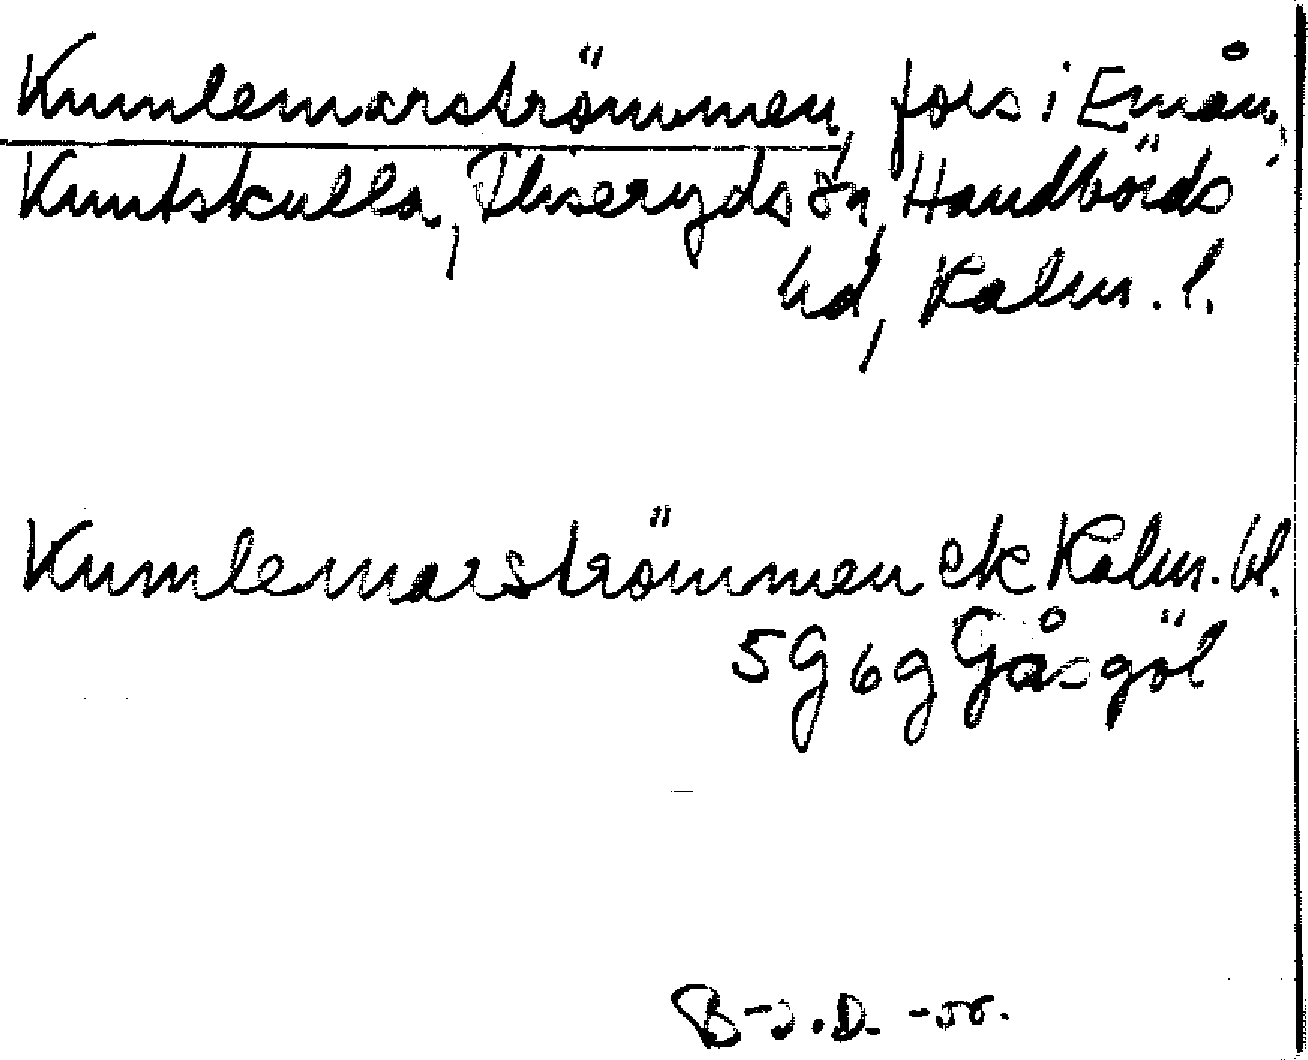 Kumlemarströmmen, fors i Emån,
Kuntskulla, Fliseryds sn, Handbörds
hd, Kalm. l.
Kumlemarströmmen ek Kalm. bl.
5G 6g Gåsgöl
B-J.D. -56.